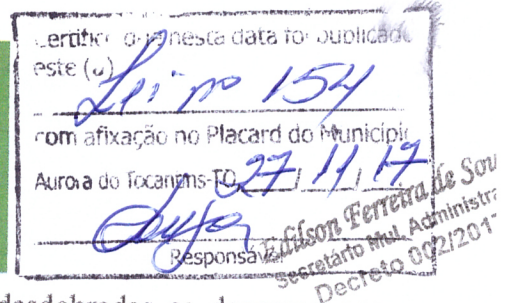 Certifico que nesta data foi publicado
este (a)
Lei nº 154
com afixação no Placard do Município
Aurora do Tocantins-TO 27/11/17
Responsável
Edilson Ferreira de Sou
Secretário Mul. Administra
Decreto 002/201
desdobradas